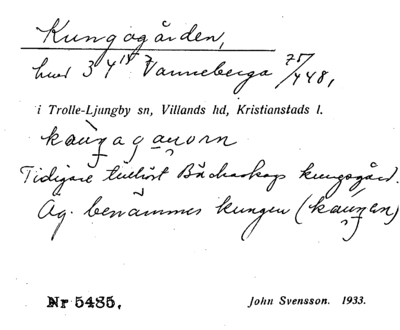 Kungsgården,
hmd 3 4 Vanneberga 75/448,
i Trolle-Ljungby sn, Villands hd, Kristianstads l.
Tidigare tillhört Bäckaskogs kungsgård.
Äg. benämnes kungen
Nr 5485. John Svensson. 1933.